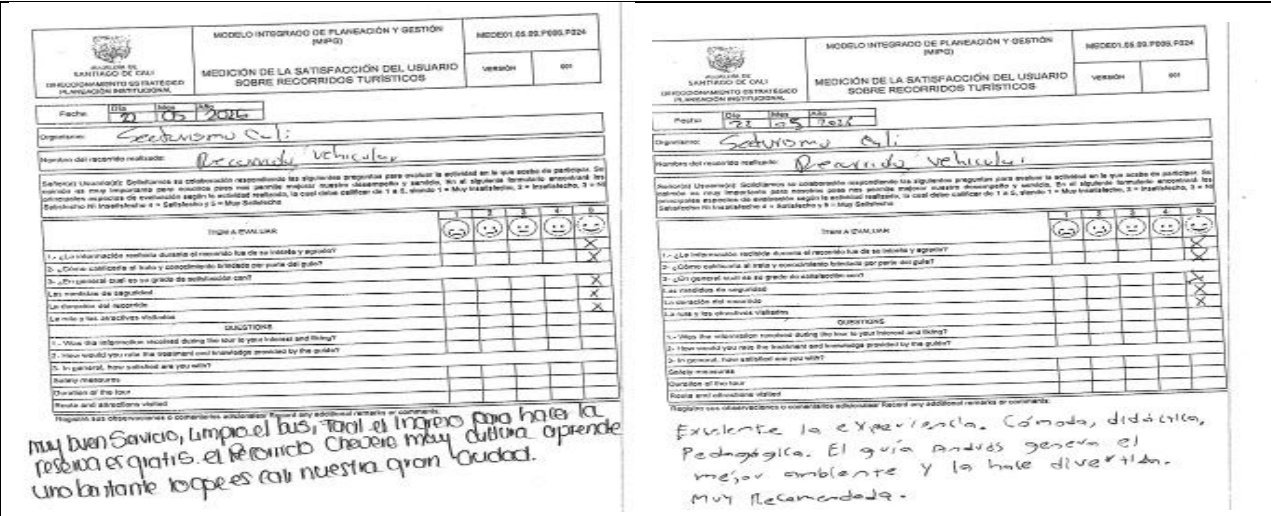 MODELO INTEGRADO DE PLANEACIÓN Y GESTIÓN
(MIPG)
ALCALDÍA DE
SANTIAGO DE CALI
DIRECCIONAMIENTO ESTRATÉGICO
PLANEACIÓN INSTITUCIONAL
MEDICIÓN DE LA SATISFACCIÓN DEL USUARIO
SOBRE RECORRIDOS TURÍSTICOS
MEDE01.05.03.P005.F024
VERSIÓN 001
Fecha: Día Mes Año
05
Organismo: Secturismo Cali
Nombre del recorrido realizado: Recorrido vehicular
Señor(a) Usuario(a): Solicitamos su colaboración respondiendo las siguientes preguntas para evaluar la actividad en la que acaba de participar. Su
opinión es muy importante para nosotros pues nos permite mejorar nuestro desempeño y servicio. En el siguiente formulario encontrará los
principales aspectos de evaluación según la actividad realizada, la cual debe calificar de 1 a 5, siendo 1 = Muy Insatisfecho, 2 = Insatisfecho, 3 = Ni
Satisfecho Ni Insatisfecho 4 = Satisfecho y 5 = Muy Satisfecho
ITEM A EVALUAR 1 2 3 4 5
1.- ¿La información recibida durante el recorrido fue de su interés y agrado? X
2- ¿Cómo calificaría el trato y conocimiento brindado por parte del guía? X
3- ¿En general cuál es su grado de satisfacción con?
Las medidas de seguridad X
La duración del recorrido X
La ruta y los atractivos visitados X
QUESTIONS
1.- Was the information received during the tour to your interest and liking?
2.- How would you rate the treatment and knowledge provided by the guide?
3- In general, how satisfied are you with?
Safety measures
Duration of the tour
Route and attractions visited
Registre sus observaciones o comentarios adicionales/ Record any additional remarks or comments:
muy buen Servicio, Limpio el bus, Facil el Ingreso para hacer la
reserva es gratis. el Recorrido Chevere muy cultura aprende
uno bastante lo que es cali nuestra gran Ciudad.
MODELO INTEGRADO DE PLANEACIÓN Y GESTIÓN
(MIPG)
ALCALDÍA DE
SANTIAGO DE CALI
DIRECCIONAMIENTO ESTRATÉGICO
PLANEACIÓN INSTITUCIONAL
MEDICIÓN DE LA SATISFACCIÓN DEL USUARIO
SOBRE RECORRIDOS TURÍSTICOS
MEDE01.05.03.P005.F024
VERSIÓN 001
Fecha: Día Mes Año
22 05
Organismo: Secturismo Cali
Nombre del recorrido realizado: Recorrido vehicular
Señor(a) Usuario(a): Solicitamos su colaboración respondiendo las siguientes preguntas para evaluar la actividad en la que acaba de participar. Su
opinión es muy importante para nosotros pues nos permite mejorar nuestro desempeño y servicio. En el siguiente formulario encontrará los
principales aspectos de evaluación según la actividad realizada, la cual debe calificar de 1 a 5, siendo 1 = Muy Insatisfecho, 2 = Insatisfecho, 3 = Ni
Satisfecho Ni Insatisfecho 4 = Satisfecho y 5 = Muy Satisfecho
ITEM A EVALUAR 1 2 3 4 5
1.- ¿La información recibida durante el recorrido fue de su interés y agrado? X
2- ¿Cómo calificaría el trato y conocimiento brindado por parte del guía? X
3- ¿En general cuál es su grado de satisfacción con?
Las medidas de seguridad X
La duración del recorrido X
La ruta y los atractivos visitados X
QUESTIONS
1.- Was the information received during the tour to your interest and liking?
2.- How would you rate the treatment and knowledge provided by the guide?
3- In general, how satisfied are you with?
Safety measures
Duration of the tour
Route and attractions visited
Registre sus observaciones o comentarios adicionales/ Record any additional remarks or comments:
Exelente la experiencia. Cómoda, didáctica,
Pedagógica. El guía Andrés genera el
mejor ambiente y la hace divertida.
Muy Recomendada.